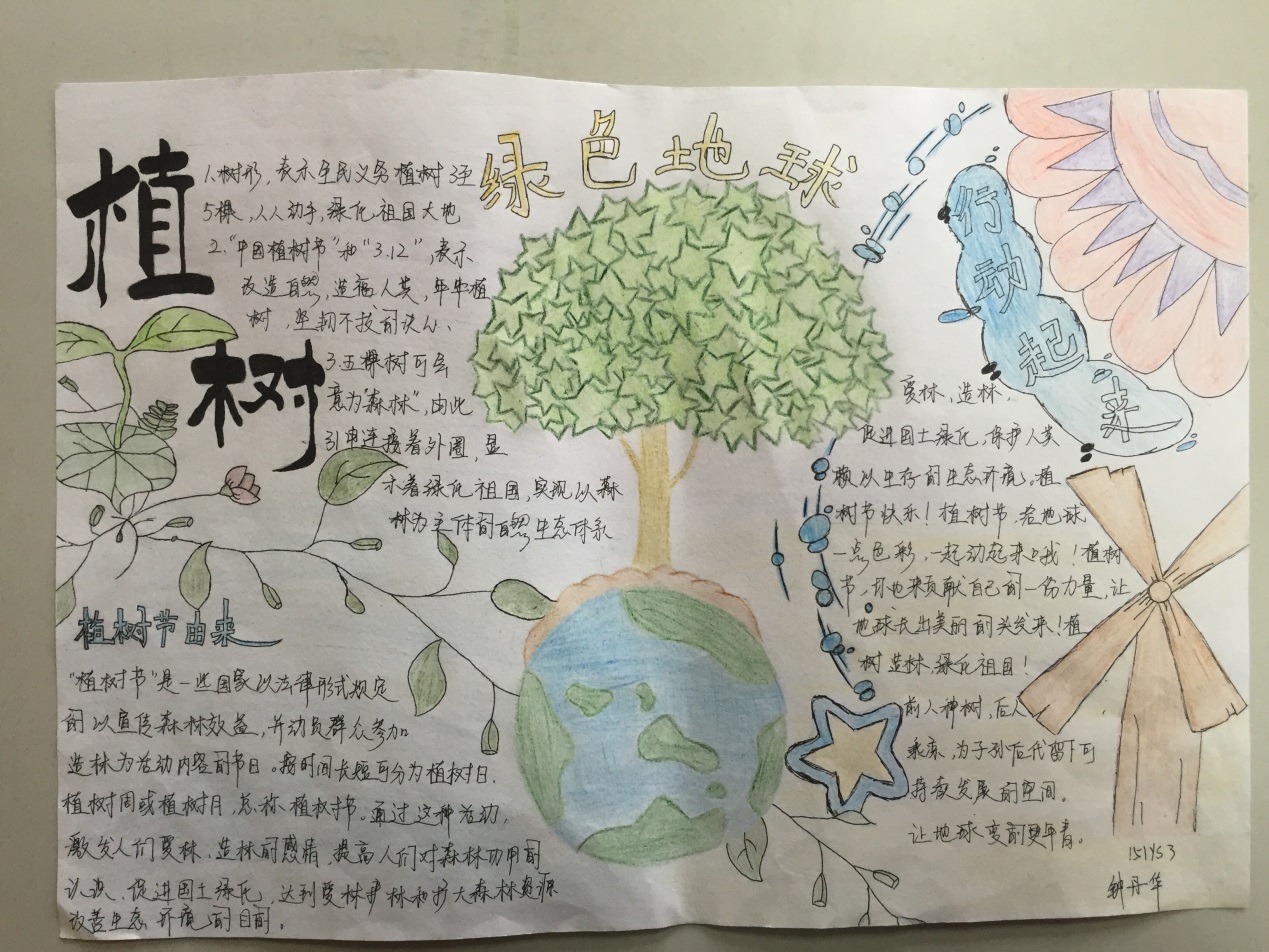 植
树
绿色地球
行动起来
1.树形，表示全民义务植树3至
5棵，人人动手，绿化祖国大地
2.“中国植树节”和“3.12”，表示
改造自然，造福人类，年年植
树，坚韧不拔的决心、
3.五棵树可会
意为“森林”，由此
引申连接着外圈，显
示着绿化祖国，实现以森
林为主体的自然生态体系
植树节由来
“植树节”是一些国家以法律形式规定
的以宣传森林效益，并动员群众参加
造林为活动内容的节日。按时间长短可分为植树日、
植树周或植树月，总称植树节。通过这种活动，
激发人们爱林、造林的感情、提高人们对森林功用的
认识、促进国土绿化，达到爱林护林和扩大森林资源
改善生态环境的目的。
爱林，造林，
促进国土绿化，保护人类
赖以生存的生态环境。植
树节快乐！植树节，给地球
一点色彩，一起动起来哦！植树
节，你也来贡献自己的一份力量，让
地球长出美丽的头发来！植
树造林，绿化祖国！
前人种树，后人
乘凉，为子孙后代留下可
持续发展的空间。
让地球变的更年青。
151453
钟丹华